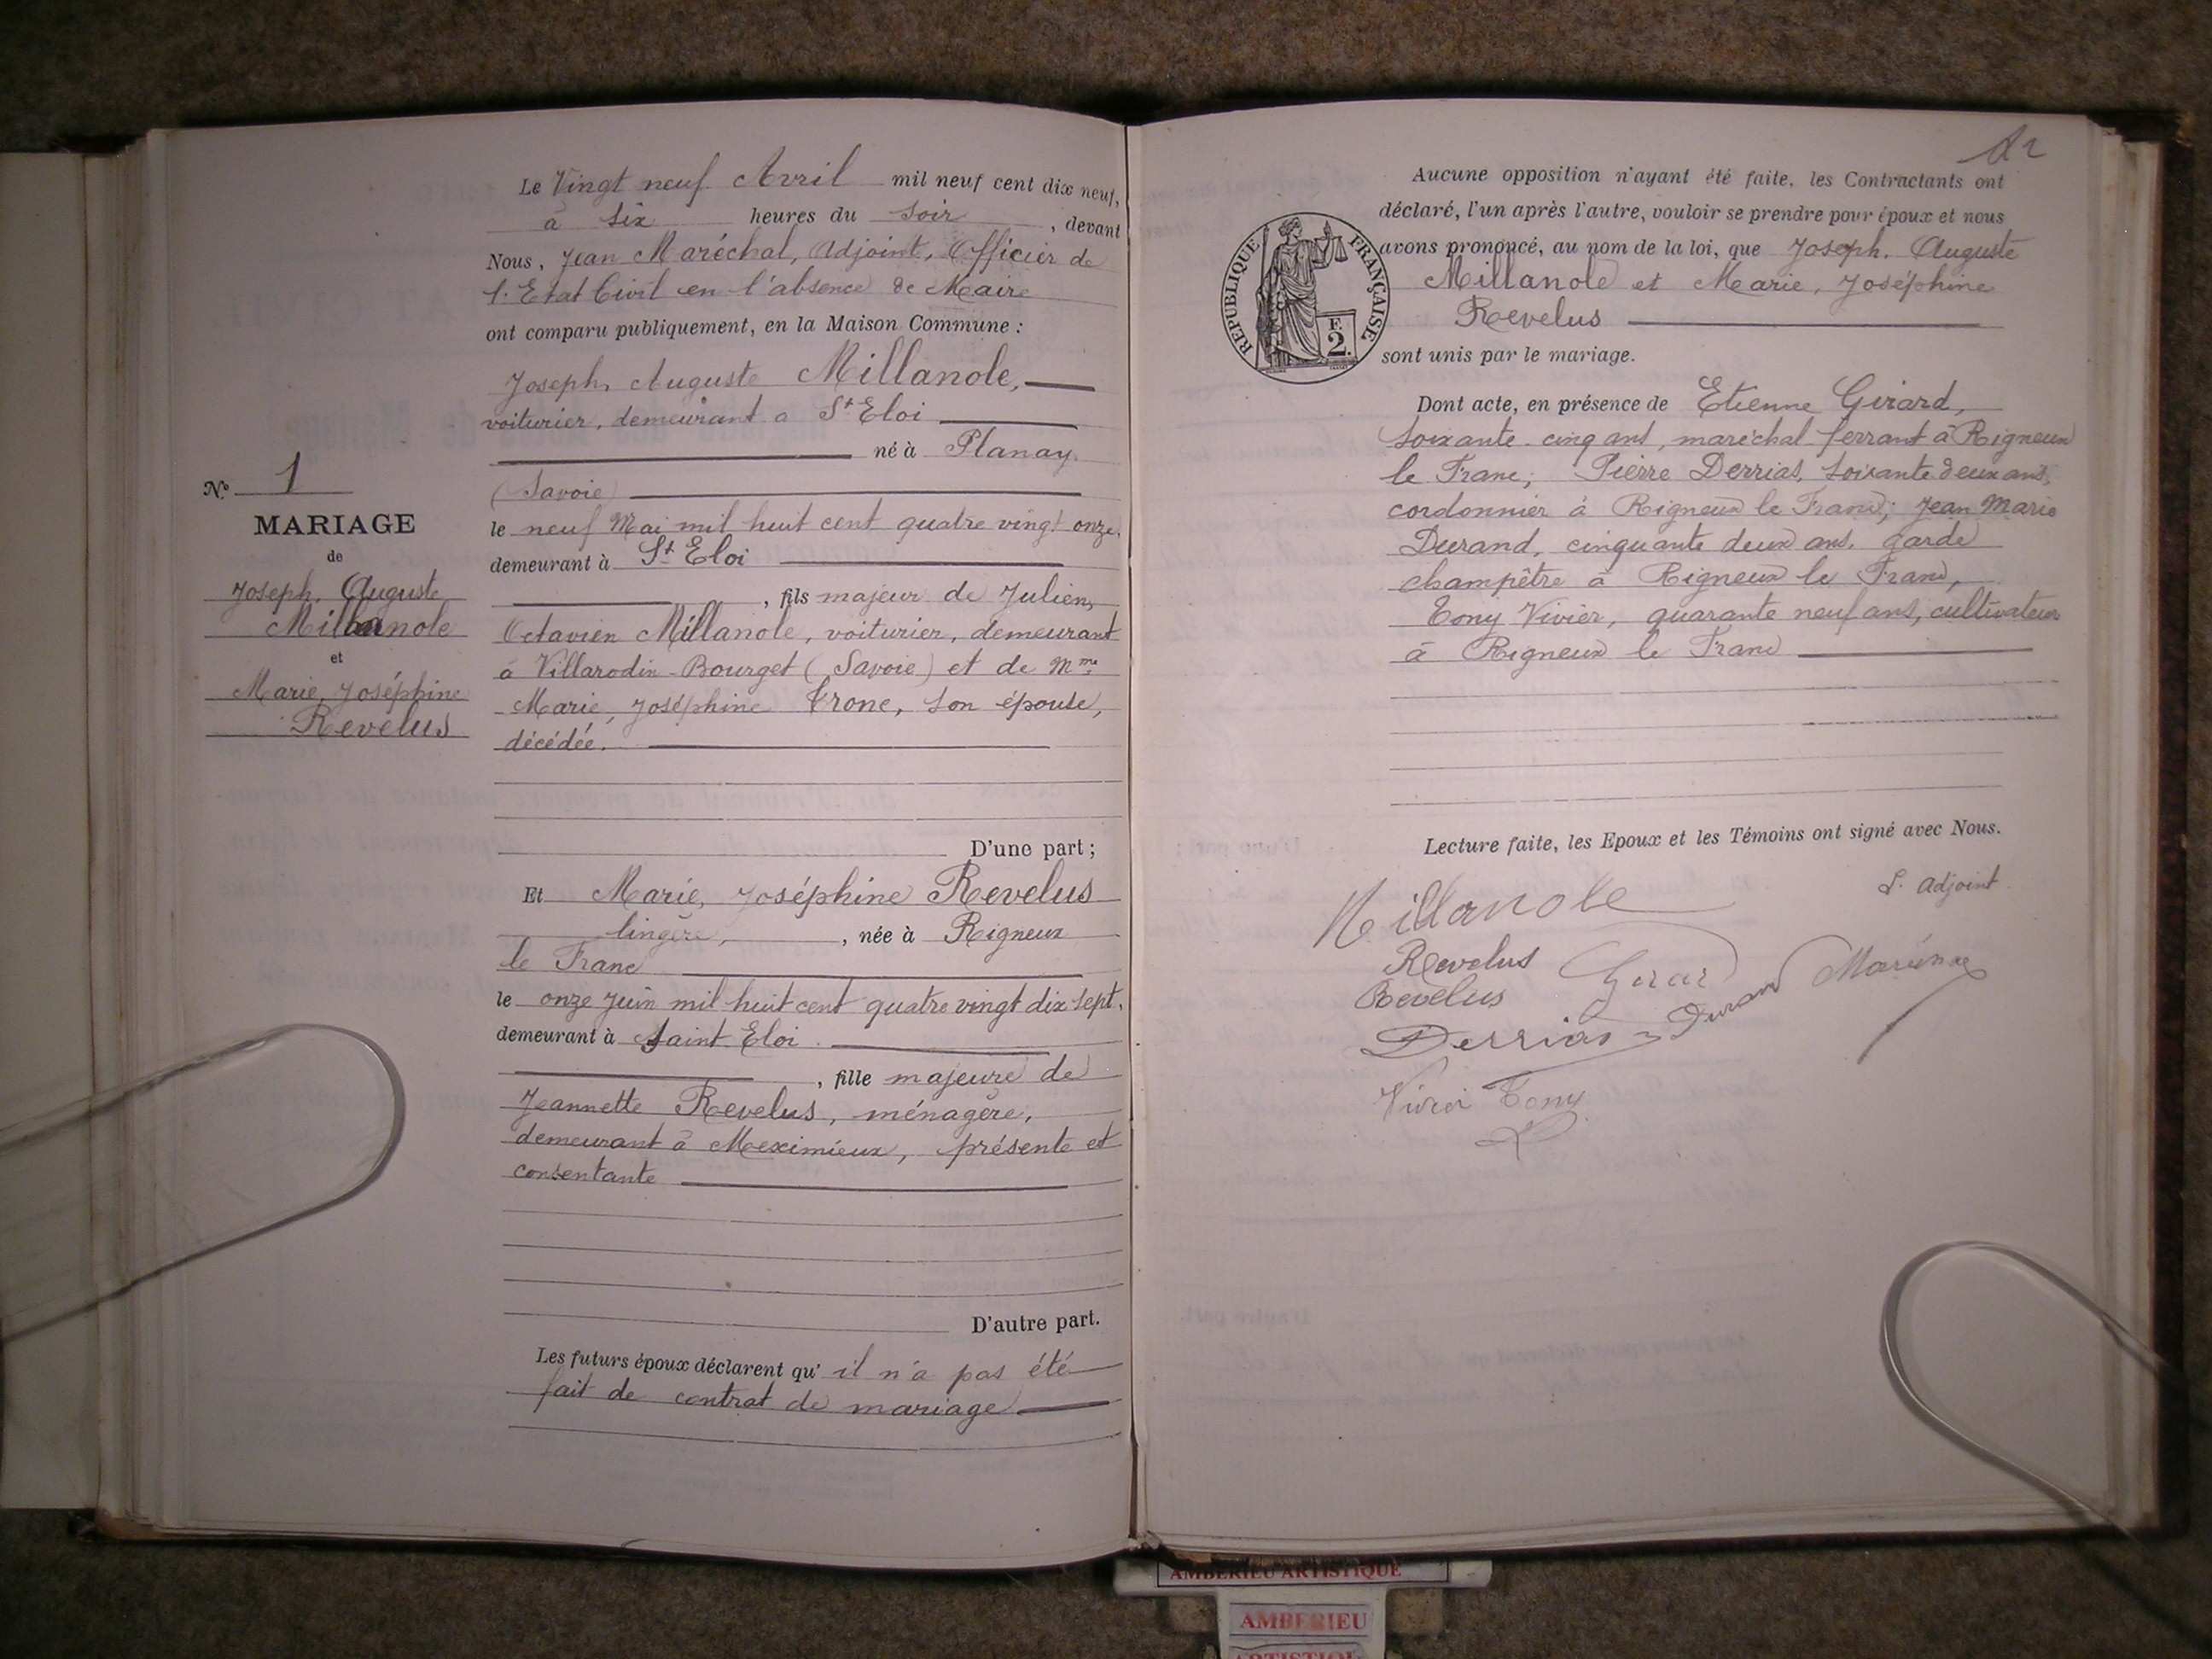 Le Vingt neuf Avril mil neuf cent dix neuf,
à six heures du soir, devant
Nous, Jean Maréchal, Adjoint, Officier de
l'Etat Civil en l'absence de Maire
ont comparu publiquement, en la Maison Commune :
Joseph, Auguste Millanole,
voiturier, demeurant a St Eloi
né à Planay
(Savoie)
le neuf Mai mil huit cent quatre vingt onze,
demeurant à St Eloi
, fils majeur de Julien,
Octavien Millanole, voiturier, demeurant
à Villarodin-Bourget (Savoie) et de Mme
Marie, Joséphine Trone, son épouse,
décédée.
D'une part ;
Et Marie, Joséphine Revelus
lingère, née à Rigneux
le Franc
le onze Juin mil huit cent quatre vingt dix sept,
demeurant à Saint Eloi
, fille majeure de
Jeannette Revelus, ménagère,
demeurant à Meximieux, présente et
consentante
D'autre part.
Les futurs époux déclarent qu'il n'a pas été
fait de contrat de mariage
No 1
MARIAGE
de
Joseph, Auguste
Millanole
et
Marie, Joséphine
Revelus
Aucune opposition n'ayant été faite, les Contractants ont
déclaré, l'un après l'autre, vouloir se prendre pour époux et nous
avons prononcé, au nom de la loi, que Joseph, Auguste
Millanole et Marie, Joséphine
Revelus
sont unis par le mariage.
RÉPUBLIQUE FRANÇAISE
F.
2.
Dont acte, en présence de Etienne Girard,
soixante cinq ans, maréchal ferrant à Rigneux
le Franc; Pierre Derrias, soixante deux ans,
cordonnier à Rigneux le Franc; Jean Marie
Durand, cinquante deux ans, garde
champêtre à Rigneux le Franc,
Tony Vivier, quarante neuf ans, cultivateur
à Rigneux le Franc
Lecture faite, les Epoux et les Témoins ont signé avec Nous.
L'adjoint
Millanole
Revelus
Girard
Revelus
Derrias
Durand
Vivier Tony
AMBERIEU ARTISTIQUE
AMBERIEU
ARTISTIQUE